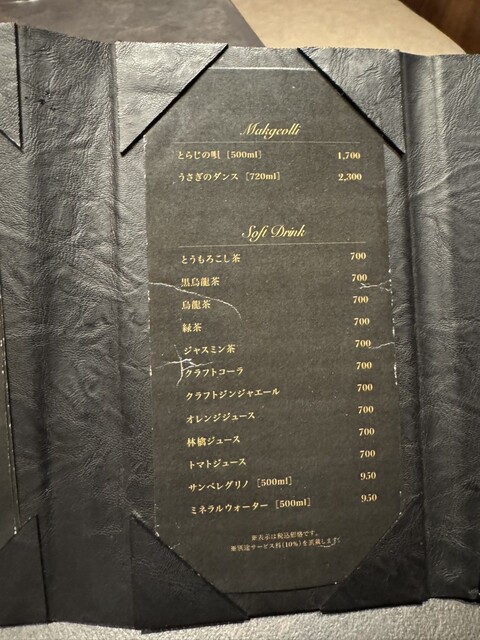 Makgeolli
とらじの唄 [500ml] 1,700
うさぎのダンス [720ml] 2,300
Soft Drink
とうもろこし茶 700
黒烏龍茶 700
烏龍茶 700
緑茶 700
ジャスミン茶 700
クラフトコーラ 700
クラフトジンジャエール 700
オレンジジュース 700
林檎ジュース 700
トマトジュース 700
サンペレグリノ [500ml] 950
ミネラルウォーター [500ml] 950
※表示は税込価格です。
※別途サービス料(10%)を頂戴します。